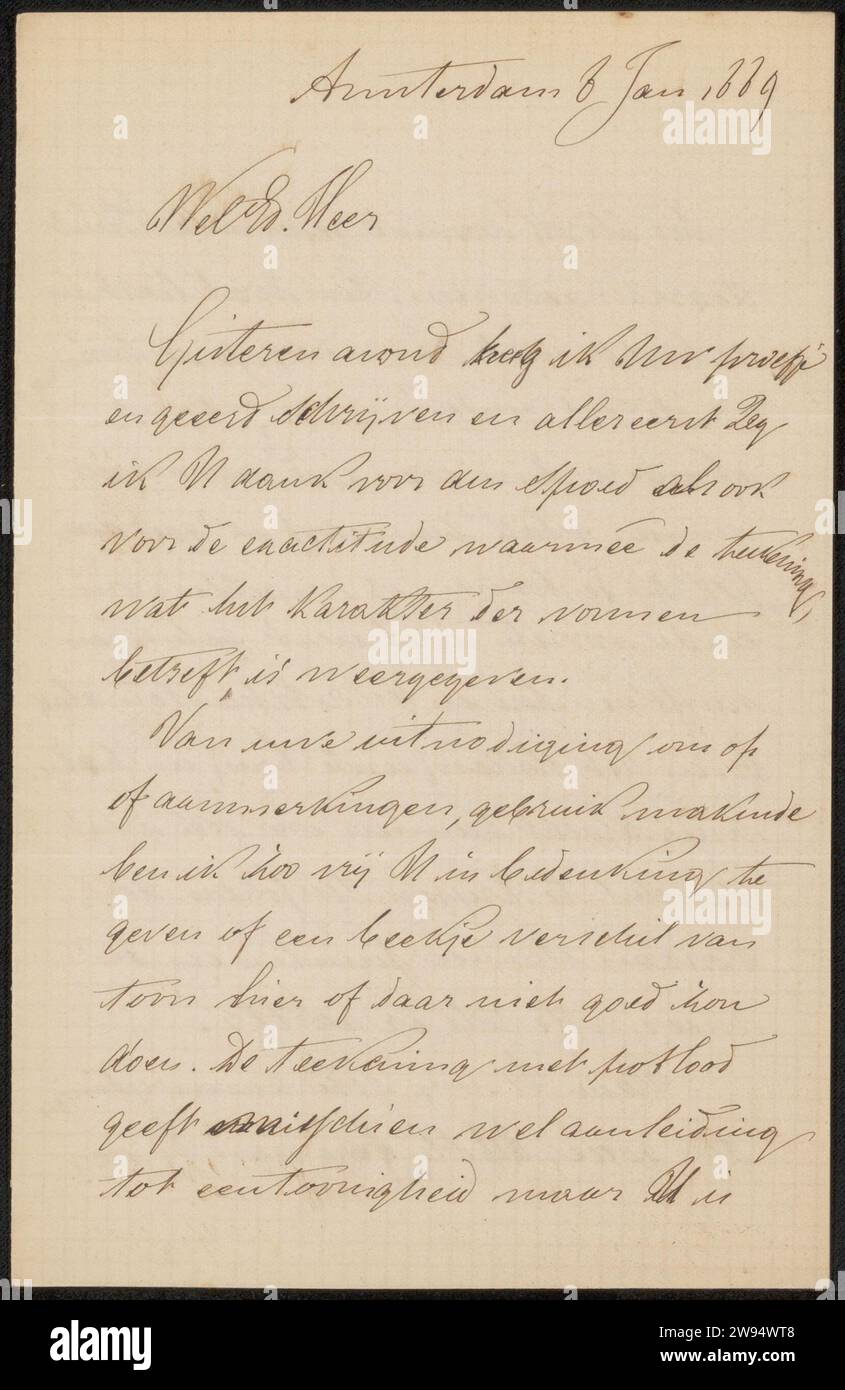 Amsterdam 8 Jan 1889
WelEd. Heer
Gisteren avond kreeg ik Uw proefje
en geeerd schrijven en allereerst zeg
ik U dank voor den spoed als ook
voor de exactitude waarmée de teekening,
wat het karakter der vormen
betreft is weergegeven.
Van uwe uitnoodiging om op
of aanmerkingen, gebruik makende
ben ik zoo vrij U in bedenking te
geven of een beetje verschil van
toon hier of daar niet goed zou
doen. De teekening met potlood
geeft misschien wel aanleiding
tot eentoonigheid maar U is
alamy
alamy
Image ID: 2W94WT8
www.alamy.com